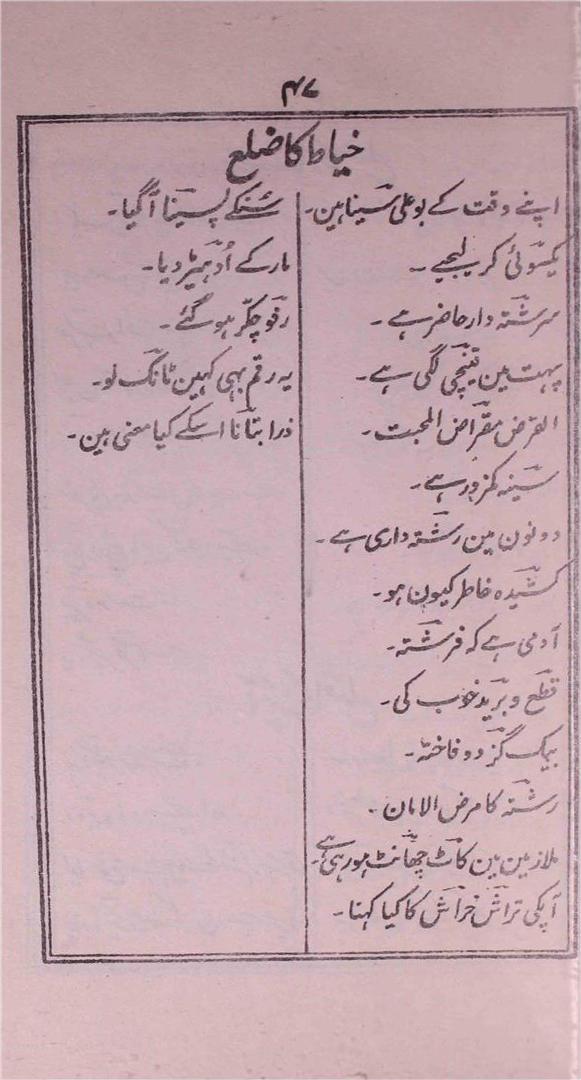 ۴۷
خیاط کا ضلع
اپنے وقت کے بو علی سینا ہین۔
یکسوئی کر لیجیے۔
سرشتہ دار حاضر ہے۔
پہت مین قینچی لگی ہے۔
القرض مقراض المحبت۔
سینہ کمزور ہے۔
دونون مین رشتہ داری ہے۔
کشیدہ خاطر کیون ہو۔
آدمی ہے کہ فرشتہ۔
قطع و برید خوب کی۔
بیک گز دو فاختہ۔
رشتہ کا مرض الامان۔
ملازمین مین کاٹ چھانٹ ہو رہی ہے۔
آپکی تراش خراش کا کیا کہنا۔
سُنکے پسینا آ گیا۔
مار کے اُدہیڑ دیا۔
رفو چکر ہو گئے۔
یہ رقم بہی کہین ٹانک لو۔
ذرا بتانا اسکے کیا معنی ہین۔